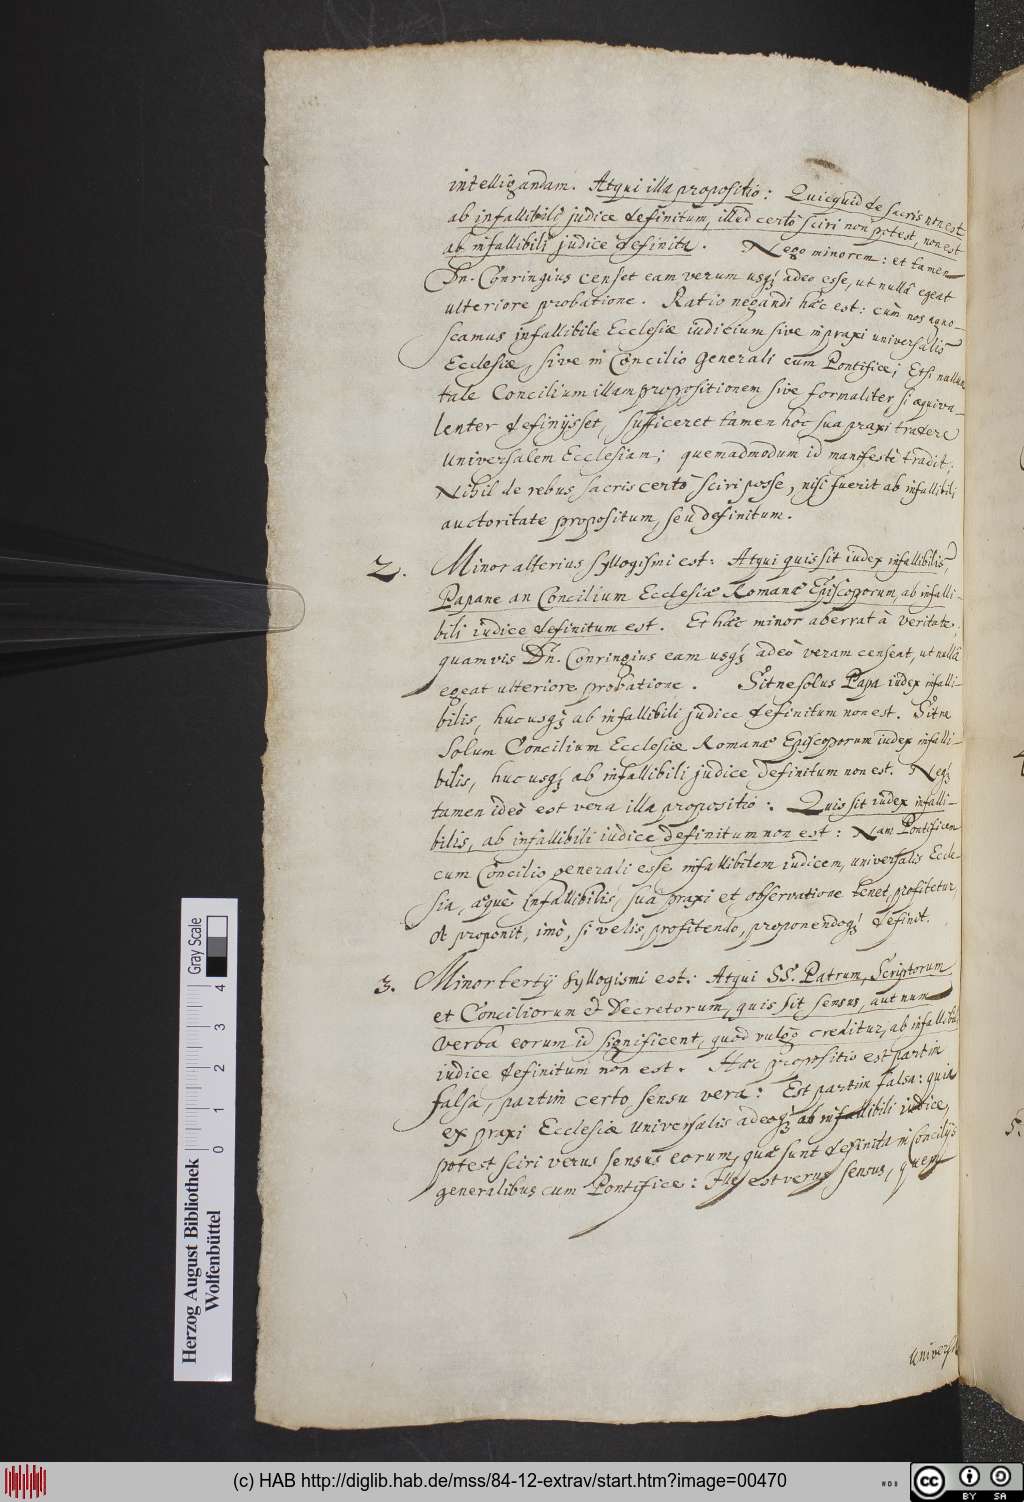 intelligandam. Atqui illa propositio: Quicquid de sacris non est
ab infallibili judice definitum, illud certò sciri non potest, non est
ab infallibili judice definita. Nego minorem: et tamen
Dn. Conringius censet eam veram usq; adeo esse, ut nullâ egeat
ulteriore probatione. Ratio negandi haec est: cùm nos agno-
scamus infallibile Ecclesiæ iudicium sive in praxi universalis
Ecclesiæ, sive in Concilio Generali cum Pontifice; Etsi nullum
tale Concilium illam propositionem sive formaliter si æquiva-
lenter definijsset, sufficeret tamen hoc sua praxi tradere
universalem Ecclesiam; quemadmodum id manifestè tradit;
Nihil de rebus sacris certò sciri posse, nisi fuerit ab infallibili
auctoritate propositum, seu definitum.
2. Minor alterius syllogismi est: Atqui quis sit iudex infallibilis
Papane an Concilium Ecclesiæ Romanæ Episcoporum, ab infalli-
bili iudice definitum est. Et hæc minor aberrat à veritate,
quamvis Dn. Conringius eam usq; adeò veram censeat, ut nullâ
egeat ulteriore probatione. Sitne solus Papa iudex infalli-
bilis, hucusq; ab infallibili judice definitum non est. Sitne
solum Concilium Ecclesiæ Romanæ Episcoporum iudex infalli-
bilis, hucusq; ab infallibili judice definitum non est. Neq;
tamen ideò est vera illa propositio: Quis sit iudex infalli-
bilis, ab infallibili iudice definitum non est: Nam Pontificem
cum Concilio generali esse infallibilem iudicem, universalis Eccle-
sia, æquè infallibilis, sua praxi et observatione tenet, profitetur,
et proponit, imò, si velis, profitendo, proponendoq; definit.
3. Minor tertij syllogismi est: Atqui SS. Patrum, Scriptorum
et Conciliorum et Decretorum, quis sit sensus, aut num
verba eorum id significent, quod vulgo creditur, ab infallibili
iudice definitum non est. Hæc propositio est partim
falsa, partim certo sensu vera: Est partim falsa: quia
ex praxi Ecclesiæ universalis adeoq; ab infallibili iudice,
potest sciri verus sensus eorum, quæ sunt definita in Concilijs
generalibus cum Pontifice: Ille est verus sensus, quem
Herzog August Bibliothek
Wolfenbüttel
0 1 2 3 4
Gray Scale
(c) HAB http://diglib.hab.de/mss/84-12-extrav/start.htm?image=00470
cc BY SA